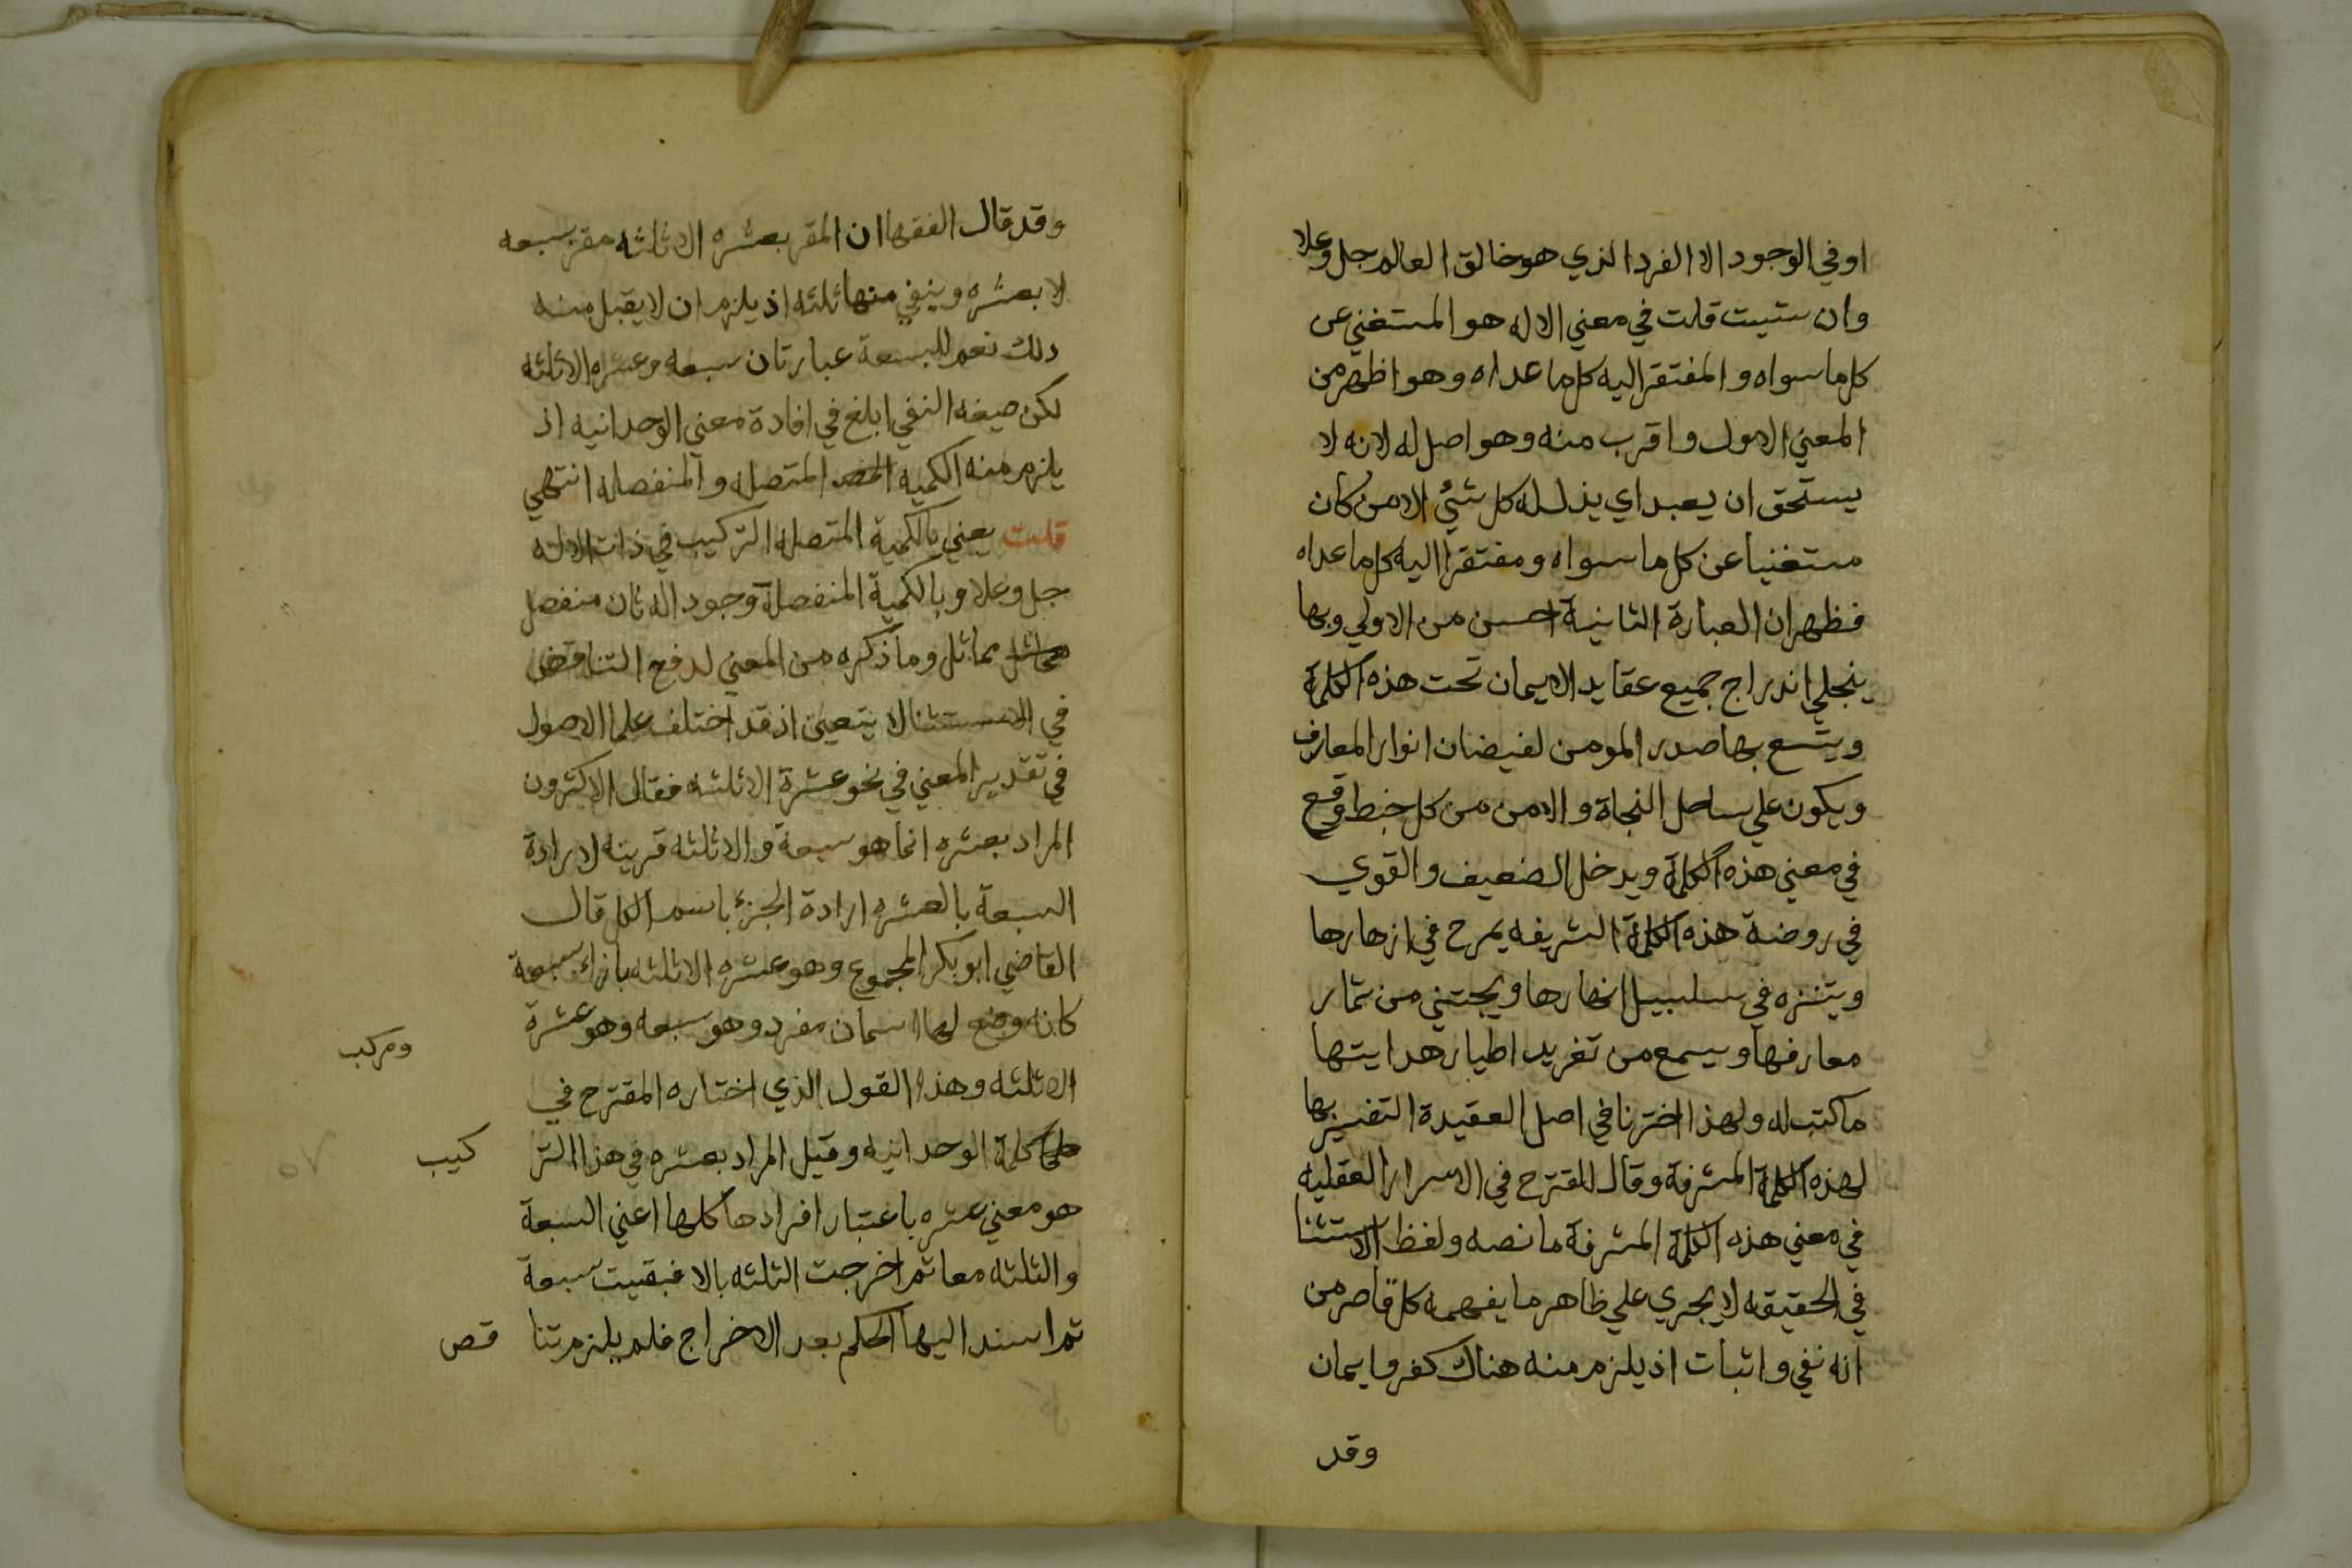 اوفي الوجود الا الفرد الذي هو خالق العالم جل وعلا
وان شيت قلت في معني الاله هو المستغني عن
كل ما سواه والمفتقر اليه كل ما عداه وهو اظهر من
المعني الاول واقرب منه وهو اصل له لانه لا
يستحق ان يعبد اي يذل له كل شيُ الا من كان
مستغنيا عن كل ما سواه ومفتقرا اليه كل ما عداه
فظهر ان العبارة الثانية احسن من الاولي وبها
ينجلي اندراج جميع عقايد الايمان تحت هذه الكلمة
ويتسع بها صدر المومن لفيضان انوار المعارف
ويكون علي ساحل النجاة والامن من كل خبط وقع
في معني هذه الكلمة ويدخل الضعيف والقوي
في روضة هذه الكلمة الشريفه يمرح في ازهارها
ويتنزه في سلسبيل انهارها ويجتني من ثمار
معارفها ويسمع من تغريد اطيار هدايتها
ما كتب له ولهذا اخترنا في اصل العقيدة التفسير بها
لهذه الكلمة المشرفة وقال المقترح في الاسرار العقليه
في معني هذه الكلمة المشرفة ما نصه ولفظ الاستثنا
في الحقيقه لا يجري علي ظاهر ما يفهمه كل قاصر من
انه نفي واثبات اذ يلزم منه هناك كفر وايمان
وقد
وقد قال الفقها ان المقر بعشره الا ثلثه مقر بسبعه
لا بعشره وينفي منها ثلثه اذ يلزم ان لا يقبل منه
ذلك نعم للسبعة عبارتان سبعه وعشره الا ثلثه
لكن صيغه النفي ابلغ في افادة معني الوحدانيه اذ
يلزم منه الكميه المتصله والمنفصله انتهي
قلت يعني بالكمية المتصلة التركيب في ذات الاله
جل وعلا وبالكمية المنفصلة وجود اله ثان منفصل
مماثل وما ذكره من المعني لدفع التناقض
في الاستثنا لا يتعين اذ قد اختلف علما الاصول
في تقدير المعني في نحو عشرة الا ثلثه فقال الاكثرون
المراد بعشره انما هو سبعة والا ثلثه قرينه لارادة
السبعة بالعشره ارادة الجزء باسم الكل قال
القاضي ابو بكر المجموع وهو عشره الا ثلثه بازاء سبعة
كانه وضع لها اسمان مفرد وهو سبعه وهو عشرة
ومركب
الا ثلثه وهذا القول الذي اختاره المقترح في
كلمة الوحدانيه وقيل المراد بعشره في هذا التر كيب
هو معني عشره باعتبار افرادها كلها اعني السبعة
والثلثه معا ثم اخرجت الثلثه بالا فبقيت سبعة
ثم اسند اليها الحكم بعد الاخراج فلم يلزم تنا قض